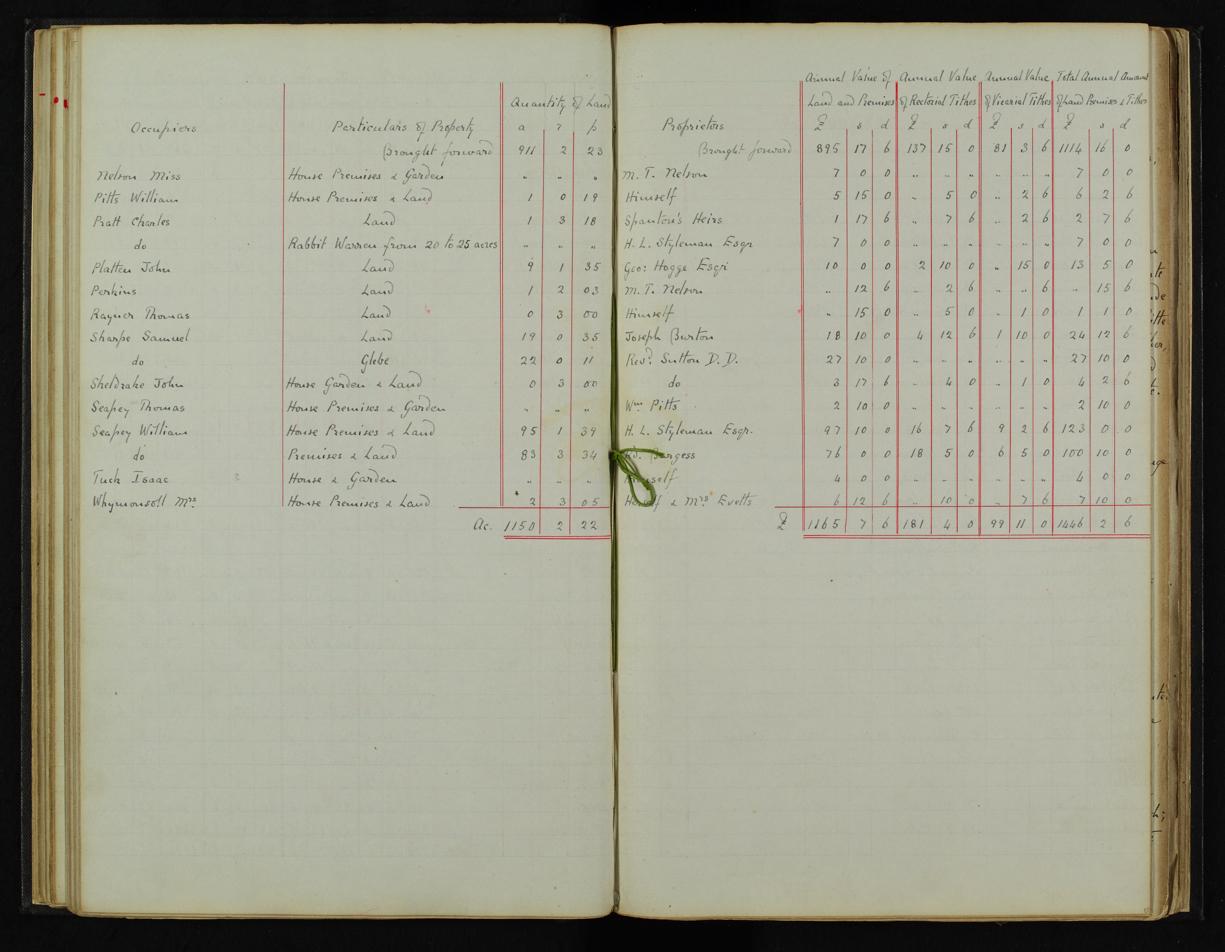 Annual Value of Annual Value Annual Value Total Annual Amount
Quantity of Land Land and Premises of Rectorial Tithes of Vicarial Tithes of Land Premises & Tithes
Occupiers Particulars of Property a r p Proprietors £ s d £ s d £ s d £ s d
Brought forward 911 2 23 Brought forward 895 17 6 137 15 0 81 3 6 1114 16 0
Nelson Miss House Premises & Garden " " " M. T. Nelson 7 0 0 " " " " " " 7 0 0
Pitts William House Premises & Land 1 0 19 Himself 5 15 0 " 5 0 " 2 6 6 2 6
Pratt Charles Land 1 3 18 Spanton's Heirs 1 17 6 " 7 6 " 2 6 2 7 6
do Rabbit Warren from 20 to 25 acres " " " H. L. Styleman Esqr 7 0 0 " " " " " " 7 0 0
Platten John Land 9 1 35 Geo: Hogge Esqr 10 0 0 2 10 0 " 15 0 13 5 0
Perkins Land 1 2 03 M. T. Nelson " 12 6 " 2 6 " " 6 " 15 6
Rayner Thomas Land 0 3 00 Himself " 15 0 " 5 0 " 1 0 1 1 0
Sharpe Samuel Land 19 0 35 Joseph Burton 18 10 0 4 12 6 1 10 0 24 12 6
do Glebe 22 0 11 Revd. Sutton D. D. 27 10 0 " " " " " " 27 10 0
Sheldrake John House Garden & Land 0 3 00 do 3 17 6 " 4 0 " 1 0 4 2 6
Seapey Thomas House Premises & Garden " " " Wm Pitts 2 10 0 " " " " " " 2 10 0
Seapey William House Premises & Land 95 1 39 H. L. Styleman Esqr. 97 10 0 16 7 6 9 2 6 123 0 0
do Premises & Land 83 3 34 Burgess 76 0 0 18 5 0 6 5 0 100 10 0
Tuck Isaac House & Garden " " " Himself 4 0 0 " " " " " " 4 0 0
Whymonsoll Mrs. House Premises & Land 2 3 05 & Mrs. Evetts 6 12 6 " 10 0 " 7 6 7 10 0
Ac. 1150 2 22 £ 1165 7 6 181 4 0 99 11 0 1446 2 6